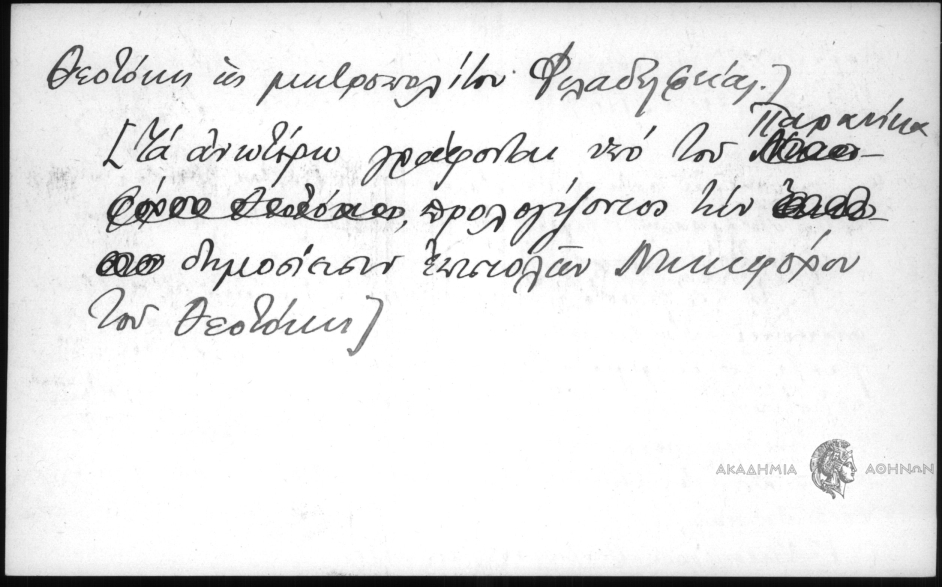 Θεοτόκη ὡς μητροπολίτου Φιλαδελφείας.]
Παρανίκα
[Τὰ ἀνωτέρω γράφονται ὑπὸ τοῦ
προλογίζοντος τὴν
δημοσίευσιν ἐπιστολῶν Νικηφόρου
τοῦ Θεοτόκη]
ΑΚΑΔΗΜΙΑ ΑΘΗΝΩΝ